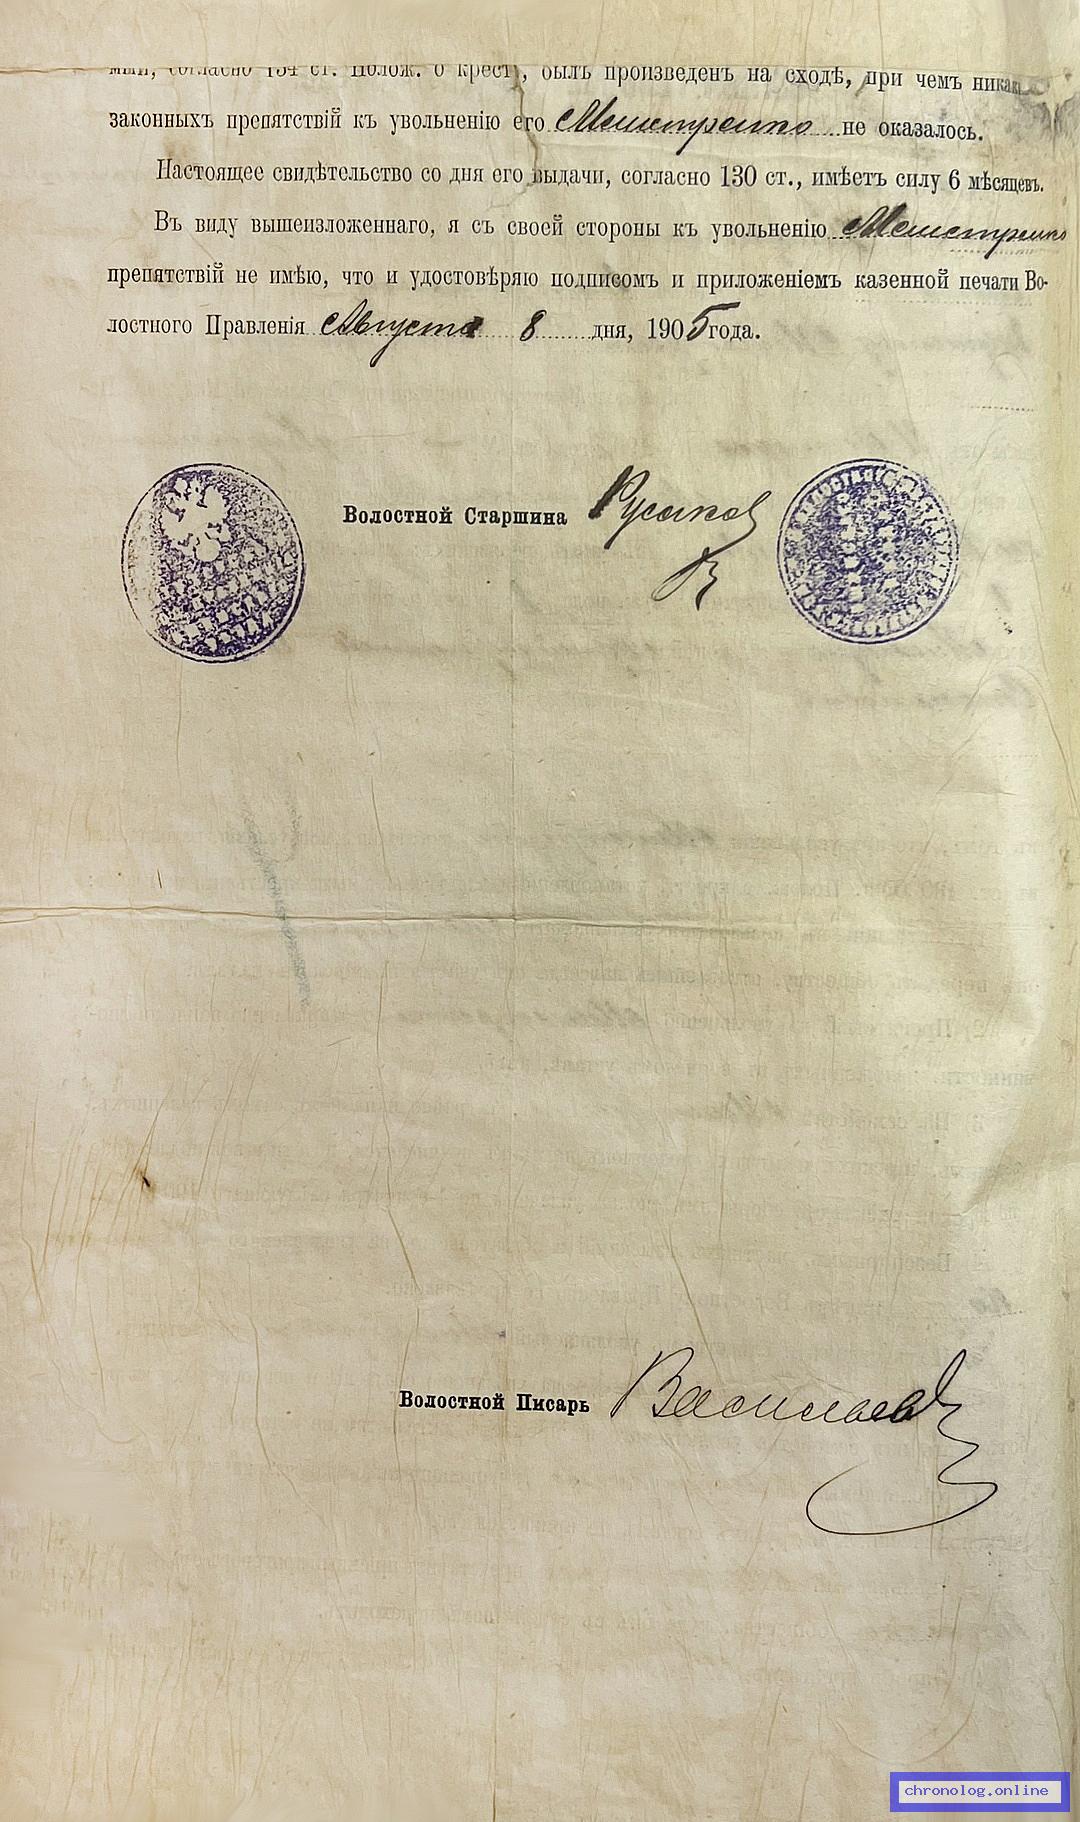 мый, согласно 134 ст. Полож. о крест., былъ произведенъ на сходѣ, при чемъ
законныхъ препятствій къ увольненію его не оказалось.
Настоящее свидѣтельство со дня его выдачи, согласно 130 ст., имѣетъ силу 6 мѣсяцевъ.
Въ виду вышеизложеннаго, я съ своей стороны къ увольненію
препятствій не имѣю, что и удостовѣряю подписомъ и приложеніемъ казенной печати Во-
лостного Правленія Августа 8 дня, 1905 года.
Волостной Старшина Русаков
Волостной Писарь Васильев
chronolog.online